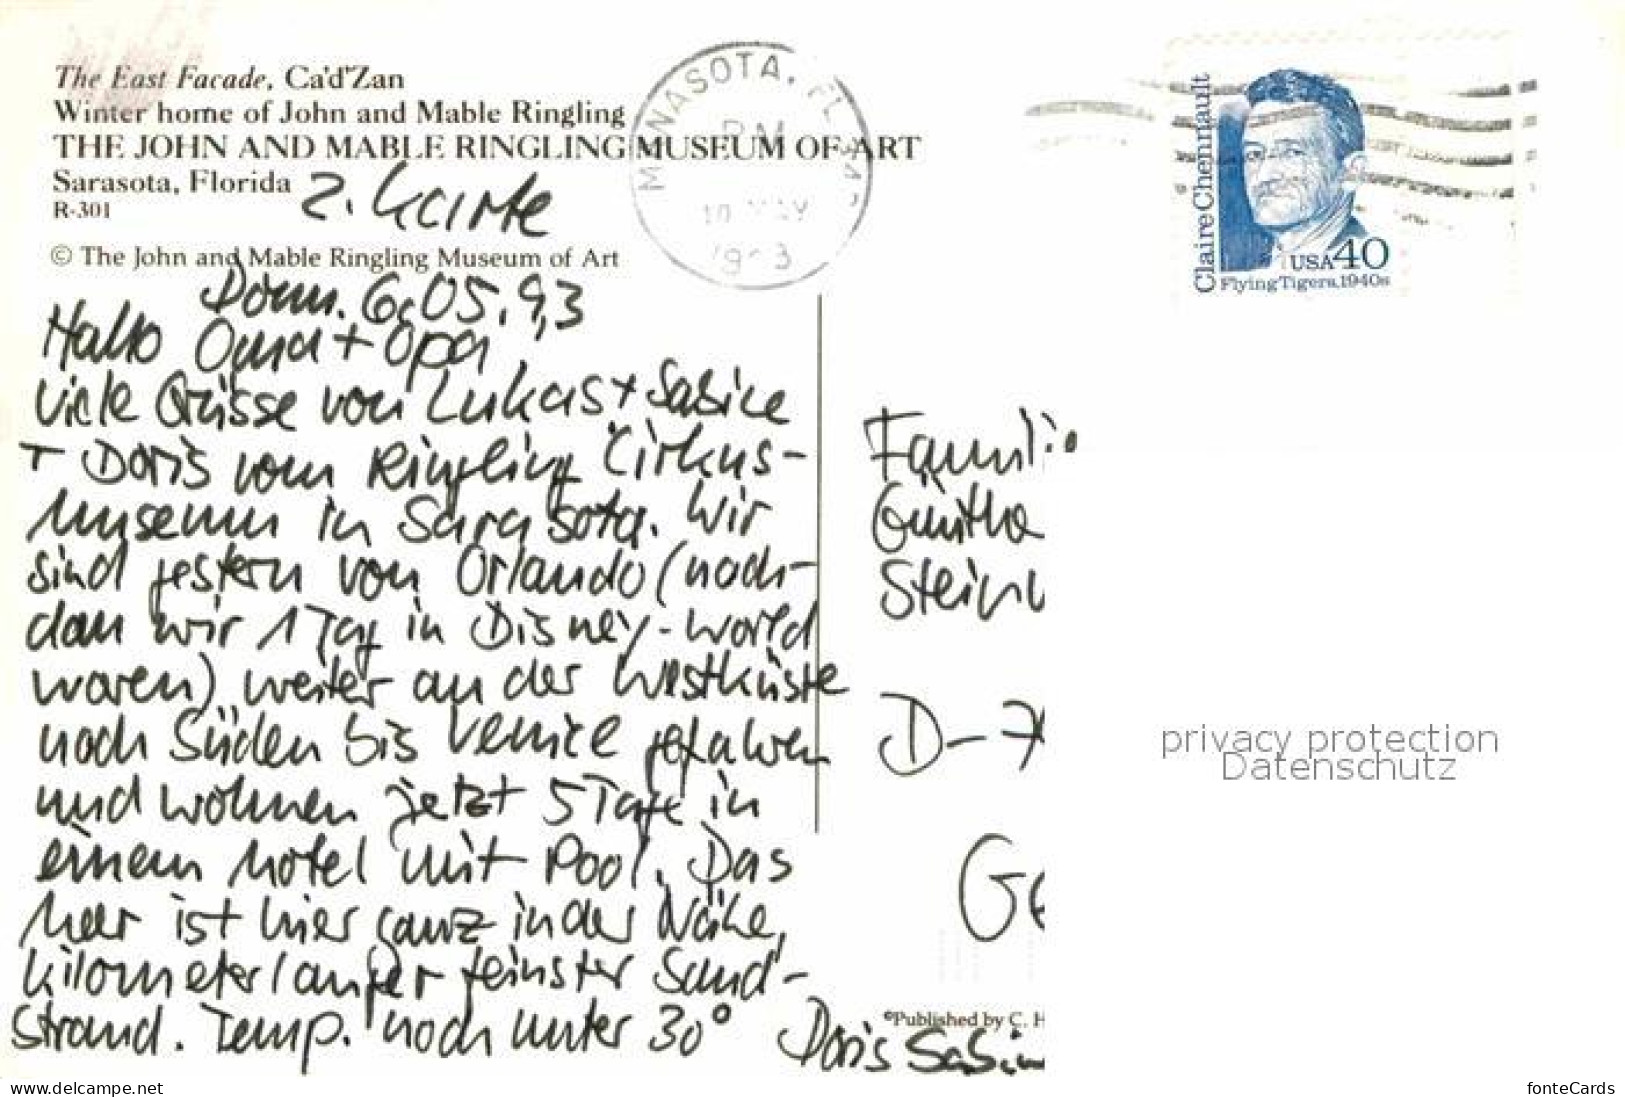 The East Facade, Ca'd'Zan
Winter home of John and Mable Ringling
THE JOHN AND MABLE RINGLING MUSEUM OF ART
Sarasota, Florida
R-301
2. Karte
© The John and Mable Ringling Museum of Art
Donn. 6.05.93
Hallo Oma + Opa
viele Grüsse von Lukas + Sabine
+ Doris vom Ringling Cirkus-
Museum in Sarasota. Wir
sind gestern von Orlando (nach-
dem wir 1 Tag in Disney-World
waren) weiter an der Westküste
nach Süden bis Venice gefahren
und wohnen jetzt 5 Tage in
einem Motel mit Pool. Das
Meer ist hier ganz in der Nähe,
kilometerlanger feinster Sand-
Strand. Temp. noch unter 30°
Doris Sabin
MANASOTA, FL
PM
10 MAY
Claire Chennault
USA 40
Flying Tigers, 1940s
Famili
Günthe
Stein
D-7
Ge
privacy protection
Datenschutz
©Published by C. H
www.delcampe.net
fonteCards